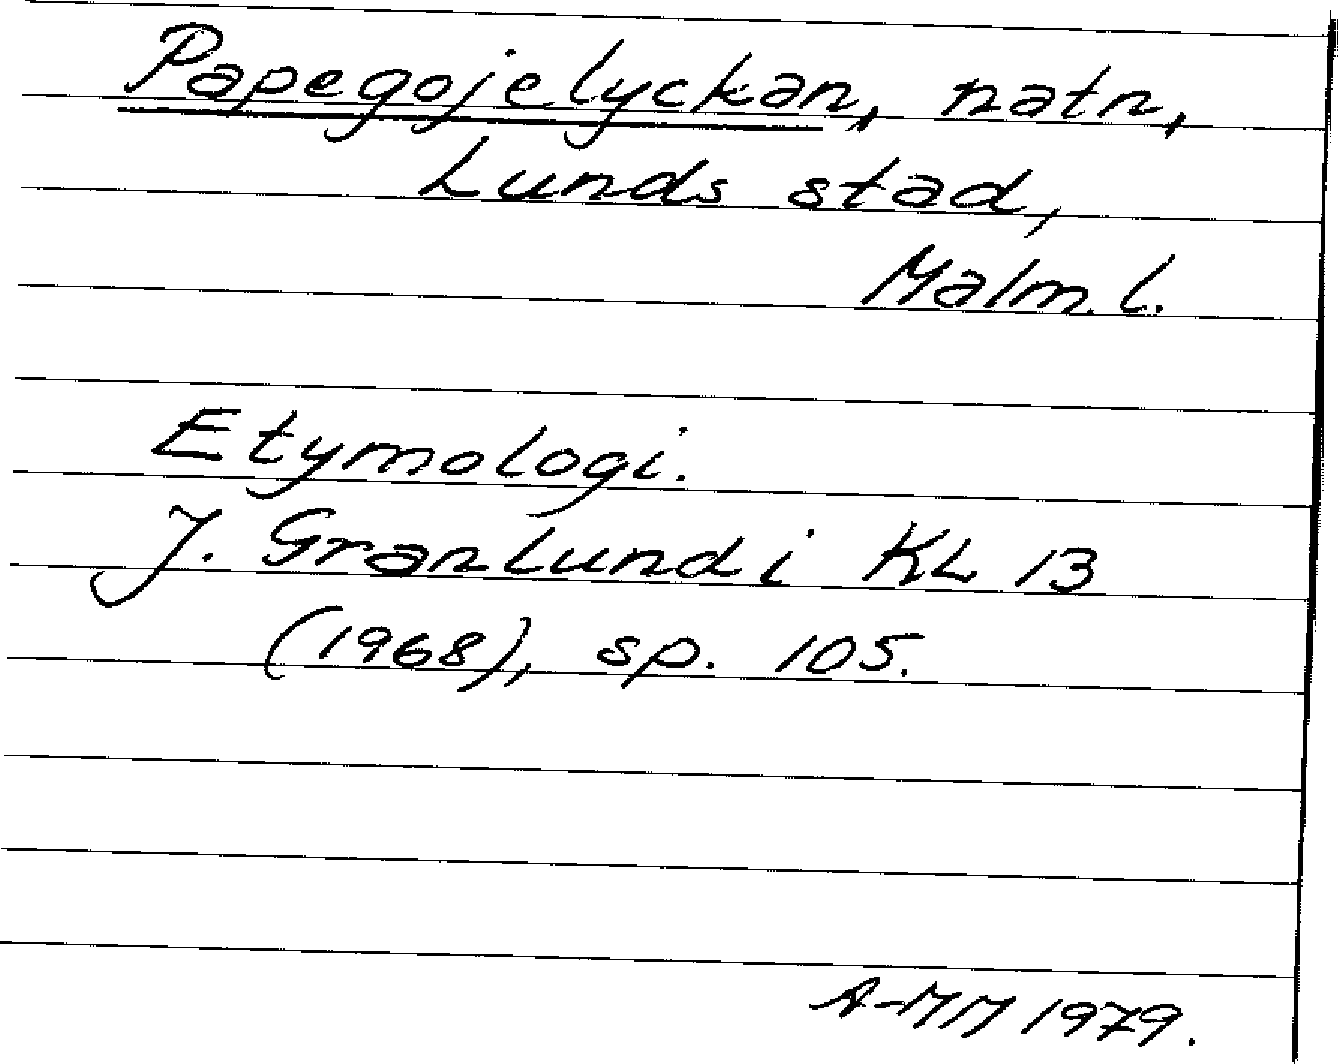 Papegojelyckan, natn,
Lunds stad,
Malm. l.
Etymologi.
J. Granlund i KL 13
(1968), sp. 105.
A-MM 1979.